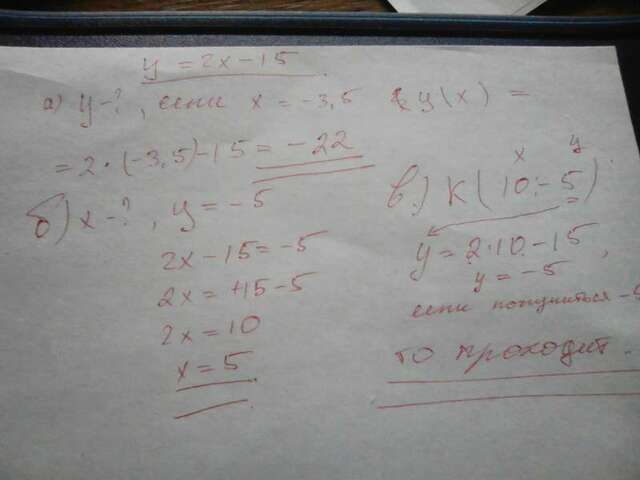 y = 2x - 15
а) y - ?, если x = -3,5 y(x) =
= 2 · (-3,5) - 15 = -22
б) x - ?, y = -5
2x - 15 = -5
2x = +15 - 5
2x = 10
x = 5
x y
в.) K(10; -5)
y = 2·10 - 15,
y = -5
если получиться -5
то проходит.